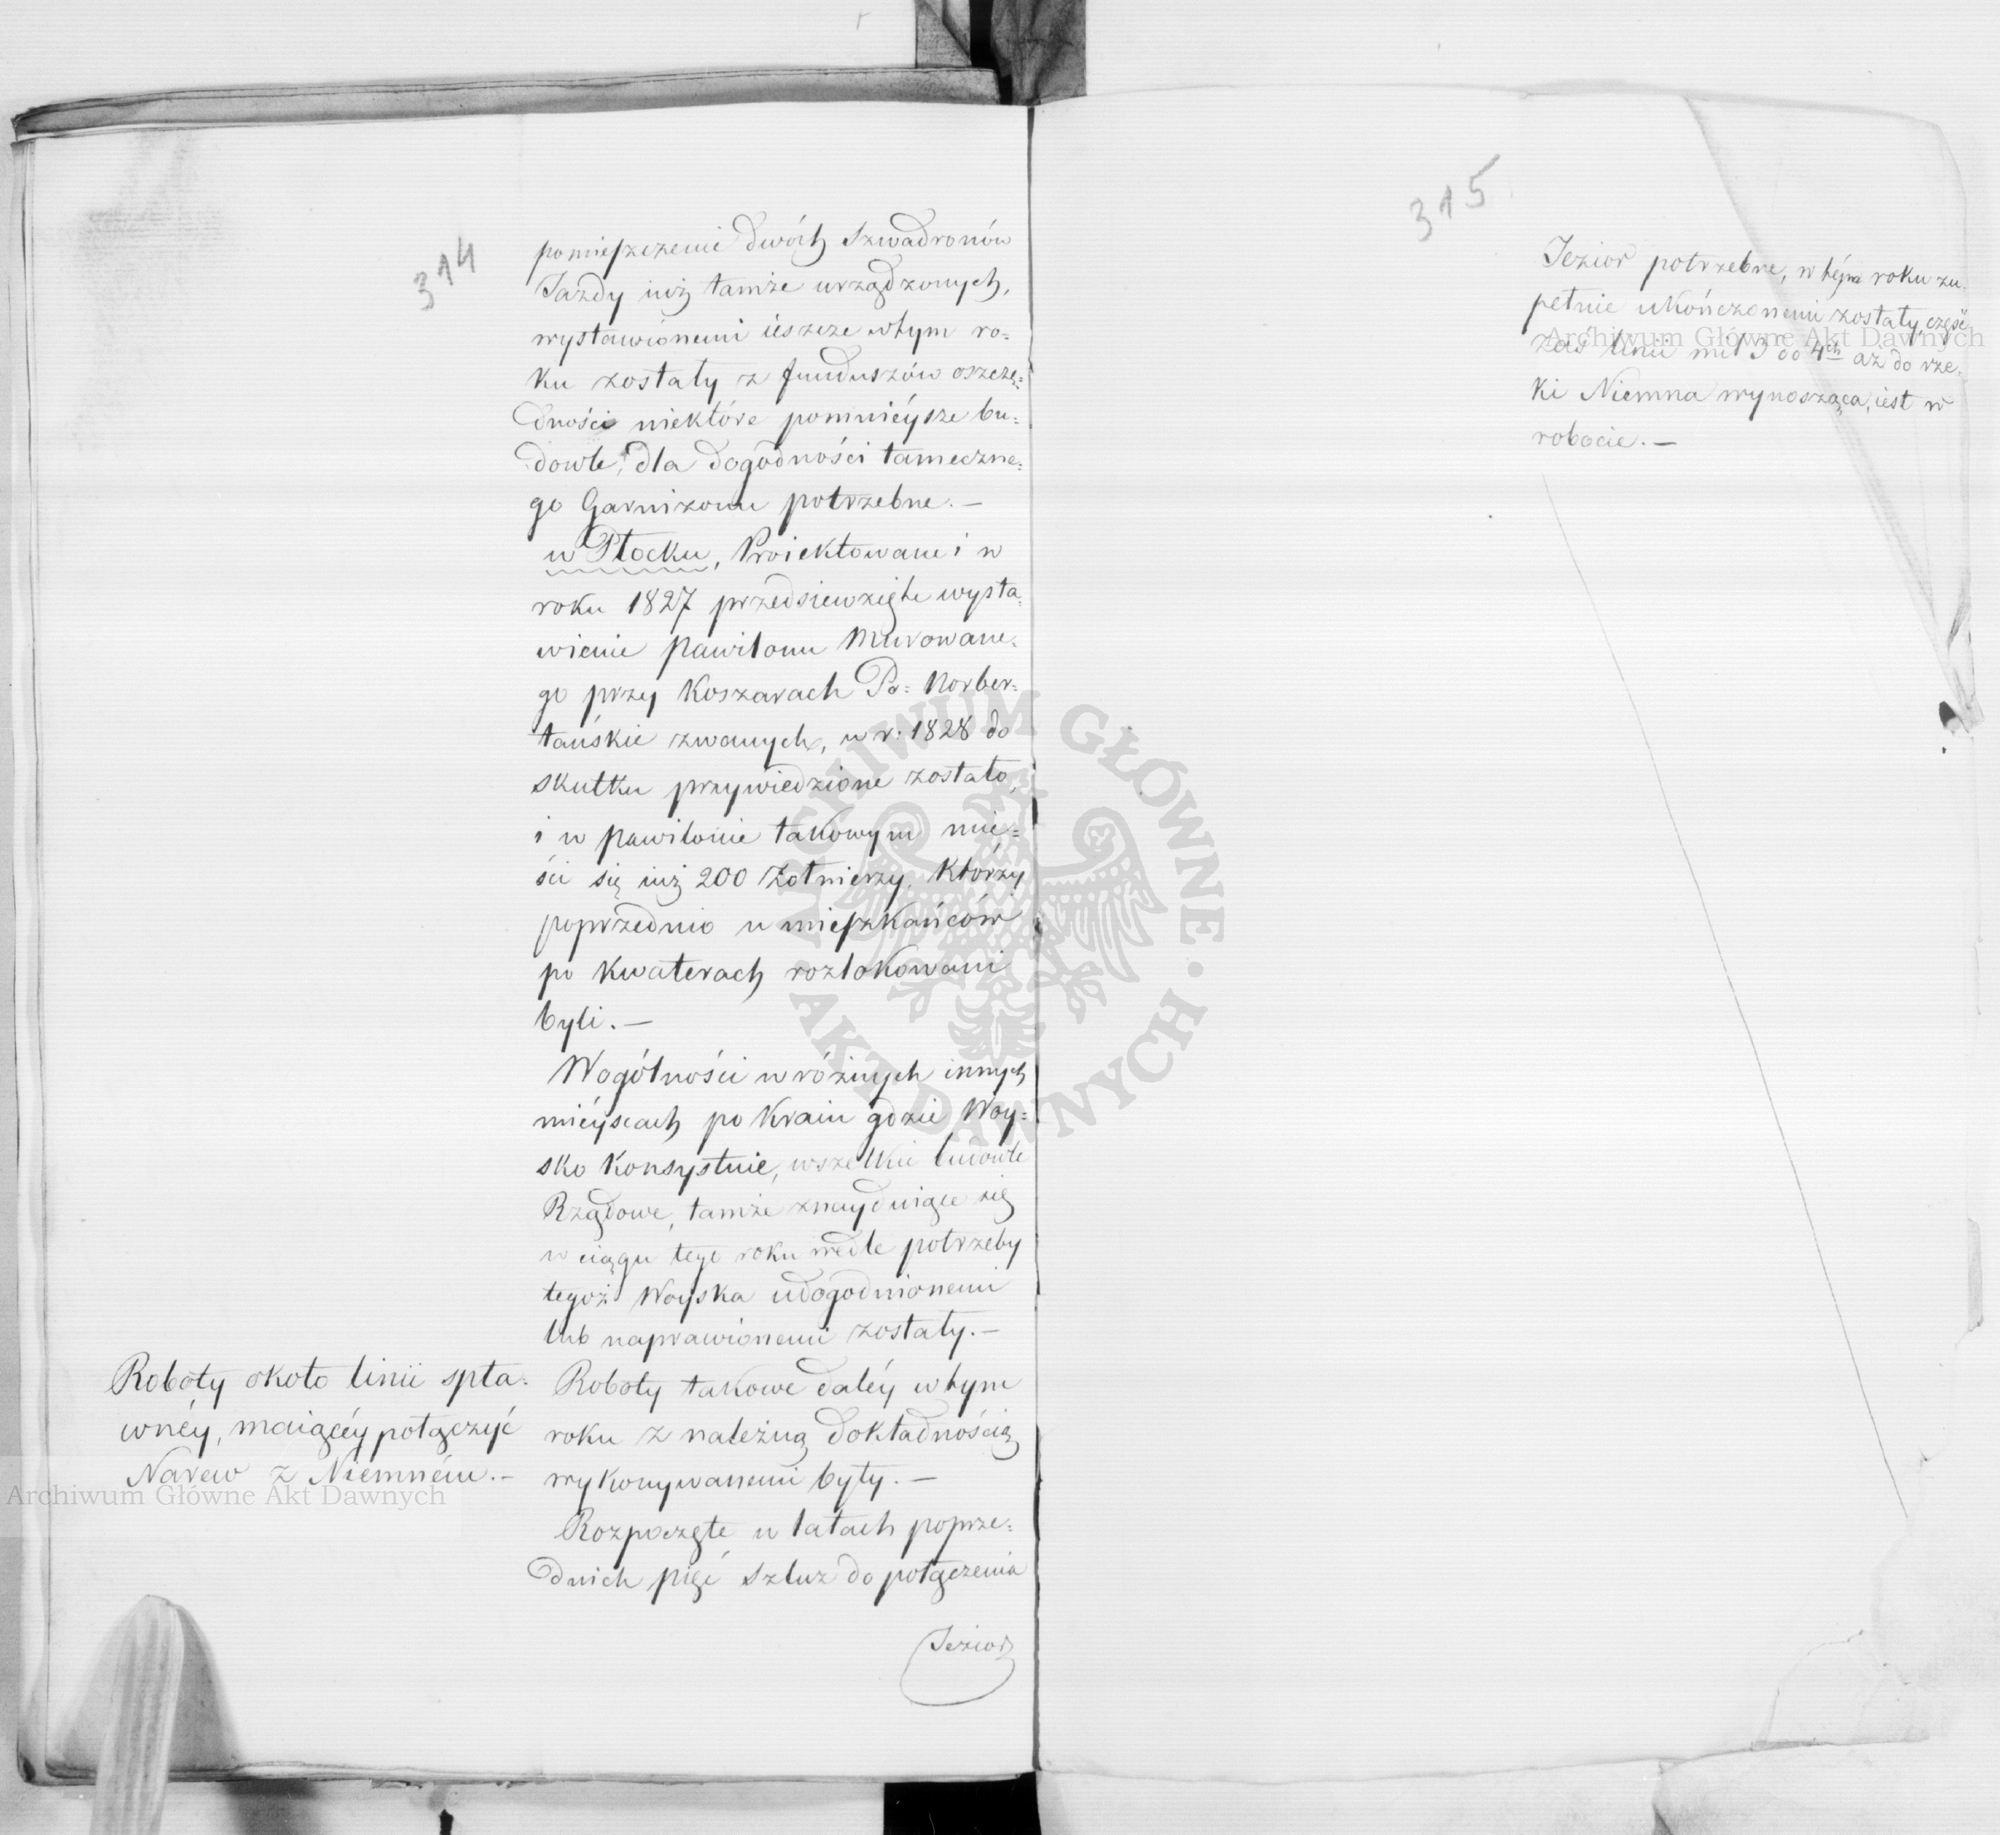 314
pomieszczenie dwóch Szwadronów
Jazdy iuż tamże urządzonych,
wystawionemi ieszcze w tym ro-
ku zostały z funduszów oszczę-
dności niektóre pomnieysze bu-
dowle, dla dogodności tameczne-
go Garnizonu potrzebne.—
w Płocku, Proiektowane i w
roku 1827 przedsiewzięte wysta-
wienie pawilonu Murowane-
go przy Koszarach Po= Norber-
tańskie zwanych, w r: 1828 do
skutku przywiedzione zostało,
i w pawilonie takowym mie-
ści się iuż 200 Żołnierzy, którzy
poprzednio u mieszkańców
po kwaterach rozlokowani
byli.—
Wogólności w różnych innych
mieyscach po Kraiu gdzie Woy-
sko konsystuie, wszelkie budowle
Rządowe, tamże znayduiące się
w ciągu tego roku wedle potrzeby
tegoż Woyska udogodnionemi
lub naprawionemi zostały.—
Roboty około linii spła-
wnéy, maiącéy połączyć
Narew z Niemnem.—
Roboty takowe daléy w tym
roku z należną dokładnością
wykonywanemi były.—
Rozpoczęte w latach poprze-
dnich pięć szluz do połączenia
Jezior
315
Jezior potrzebne, w tym roku zu-
pełnie ukończonemi zostały, część
zaś linii mil 3 do 4ch aż do rze-
ki Niemna wynosząca, iest w
robocie.—
Archiwum Główne Akt Dawnych
Archiwum Główne Akt Dawnych
ARCHIWUM GŁÓWNE AKT DAWNYCH